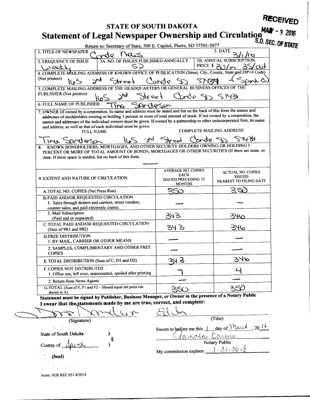 RECEIVED
MAR - 3 2016
S.D. SEC. OF STATE
STATE OF SOUTH DAKOTA
Statement of Legal Newspaper Ownership and Circulation
Return to: Secretary of State, 500 E. Capitol, Pierre, SD 57501-5077
1. TITLE OF NEWSPAPER Conde News
2. DATE 3/1/16
3. FREQUENCY OF ISSUE Weekly
3A. NO. OF ISSUES PUBLISHED ANNUALLY 52
3B. ANNUAL SUBSCRIPTION PRICE $
4. COMPLETE MAILING ADDRESS OF KNOWN OFFICE OF PUBLICATION (Street, City, County, State and ZIP+4 Code) (Not printers)
Street Conde SD 57434
5. COMPLETE MAILING ADDRESS OF THE HEADQUARTERS OR GENERAL BUSINESS OFFICES OF THE PUBLISHER (Not printer)
Street Conde SD 57434
6. FULL NAME OF PUBLISHER: Tina Sanderson
7. OWNER (If owned by a corporation, its name and address must be stated and list on the back of this form the names and
addresses of stockholders owning or holding 1 percent or more of total amount of stock. If not owned by a corporation, the
names and addresses of the individual owners must be given. If owned by a partnership or other unincorporated firm, its name
and address, as well as that of each individual must be given.
FULL NAME COMPLETE MAILING ADDRESS
Tina Sanderson Street Conde SD 57434
8. KNOWN BONDHOLDERS, MORTGAGEES, AND OTHER SECURITY HOLDERS OWNING OR HOLDING 1
PERCENT OR MORE OF TOTAL AMOUNT OF BONDS, MORTGAGES OR OTHER SECURITIES (If there are none, so
state. If more space is needed, list on back of this form.
9. EXTENT AND NATURE OF CIRCULATION
AVERAGE NO. COPIES EACH ISSUED PRECEDING 12 MONTHS
ACTUAL NO. COPIES ISSUED NEAREST TO FILING DATE
A. TOTAL NO. COPIES (Net Press Run) 350 350
B. PAID AND/OR REQUESTED CIRCULATION
1. Sales through dealers and carriers, street vendors,
counter sales, and paid electronic copies.
2. Mail Subscription
(Paid and or requested) 343 346
C. TOTAL PAID AND/OR REQUESTED CIRCULATION
(Sum of 9B1 and 9B2) 343 346
D. FREE DISTRIBUTION
1. BY MAIL, CARRIER OR OTHER MEANS
2. SAMPLES, COMPLIMENTARY AND OTHER FREE
COPIES
E. TOTAL DISTRIBUTION (Sum of C, D1 and D2) 343 346
F. COPIES NOT DISTRIBUTED
1. Office use, left over, unaccounted, spoiled after printing 7 4
2. Return from News Agents
G. TOTAL (Sum of E, F1 and F2 - Should equal net press run
shown in A) 350 350
Statement must be signed by Publisher, Business Manager, or Owner in the presence of a Notary Public
I swear that the statements made by me are true, correct, and complete:
(Signature) (Title)
State of South Dakota )
County of Spink )
§
(Seal)
Sworn to before me this 1 day of March, 2016
Notary Public
My commission expires: 1-31-2018
Form: SOS REC 051 8/2014